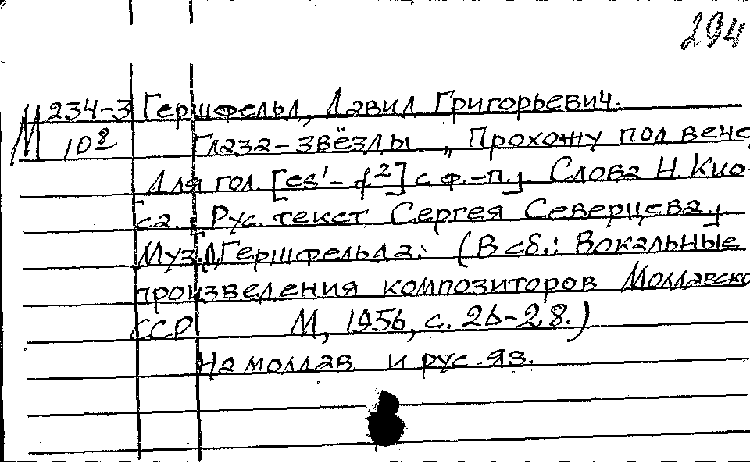 294
М 234-3 Гершфельд, Давид Григорьевич.
10² Глаза-звёзды. „Прохожу под вече
Для гол. [es'-f²] с ф.-п. Слова Н. Кио-
са. Рус. текст Сергея Северцева.
Муз. Д. Гершфельда. (В сб.: Вокальные
произведения композиторов Молдавско
ССР М, 1956, с. 26-28.)
На молдав и рус. яз.